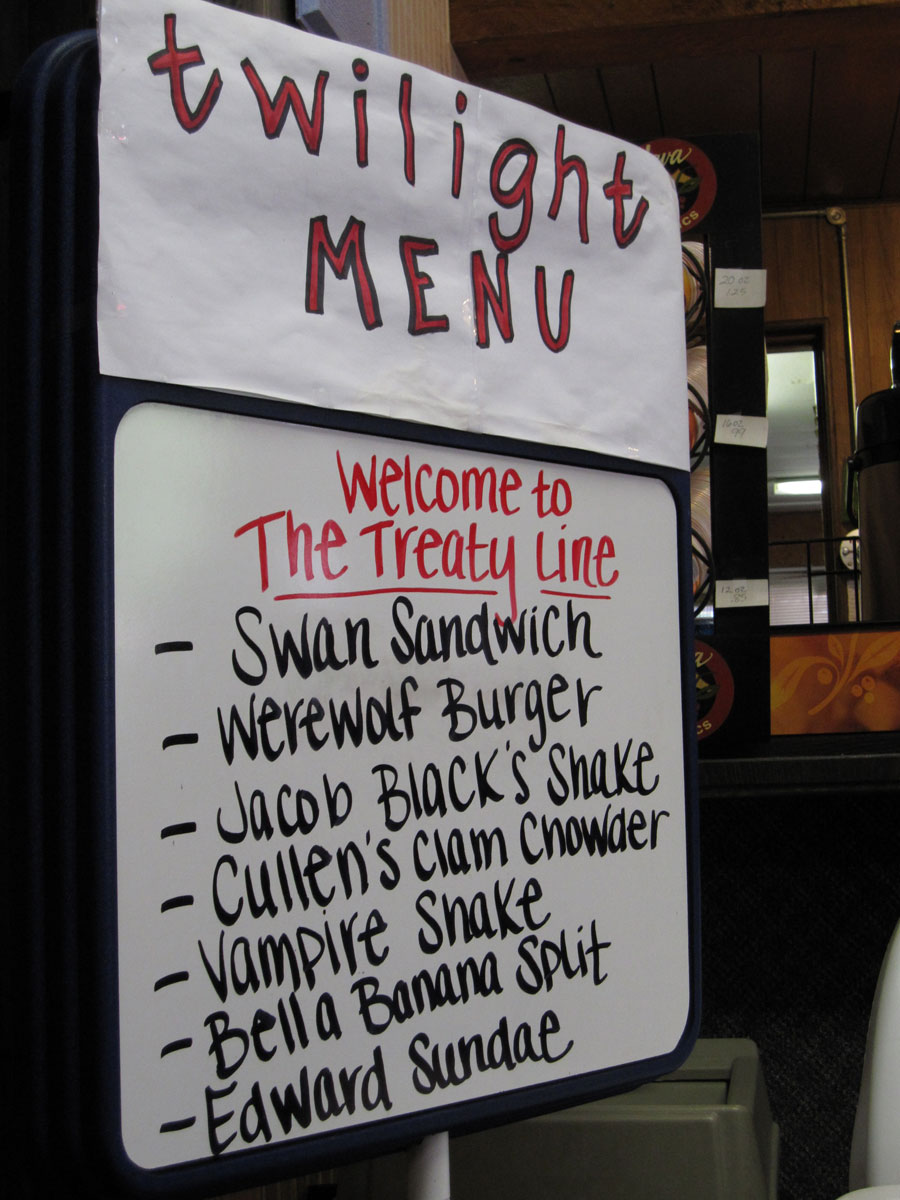 twilight
MENU
Welcome to
The Treaty Line
- Swan Sandwich
- Werewolf Burger
- Jacob Black's Shake
- Cullen's Clam Chowder
- Vampire Shake
- Bella Banana Split
- Edward Sundae
20 oz
1.25
16 oz
.99
12 oz
.85